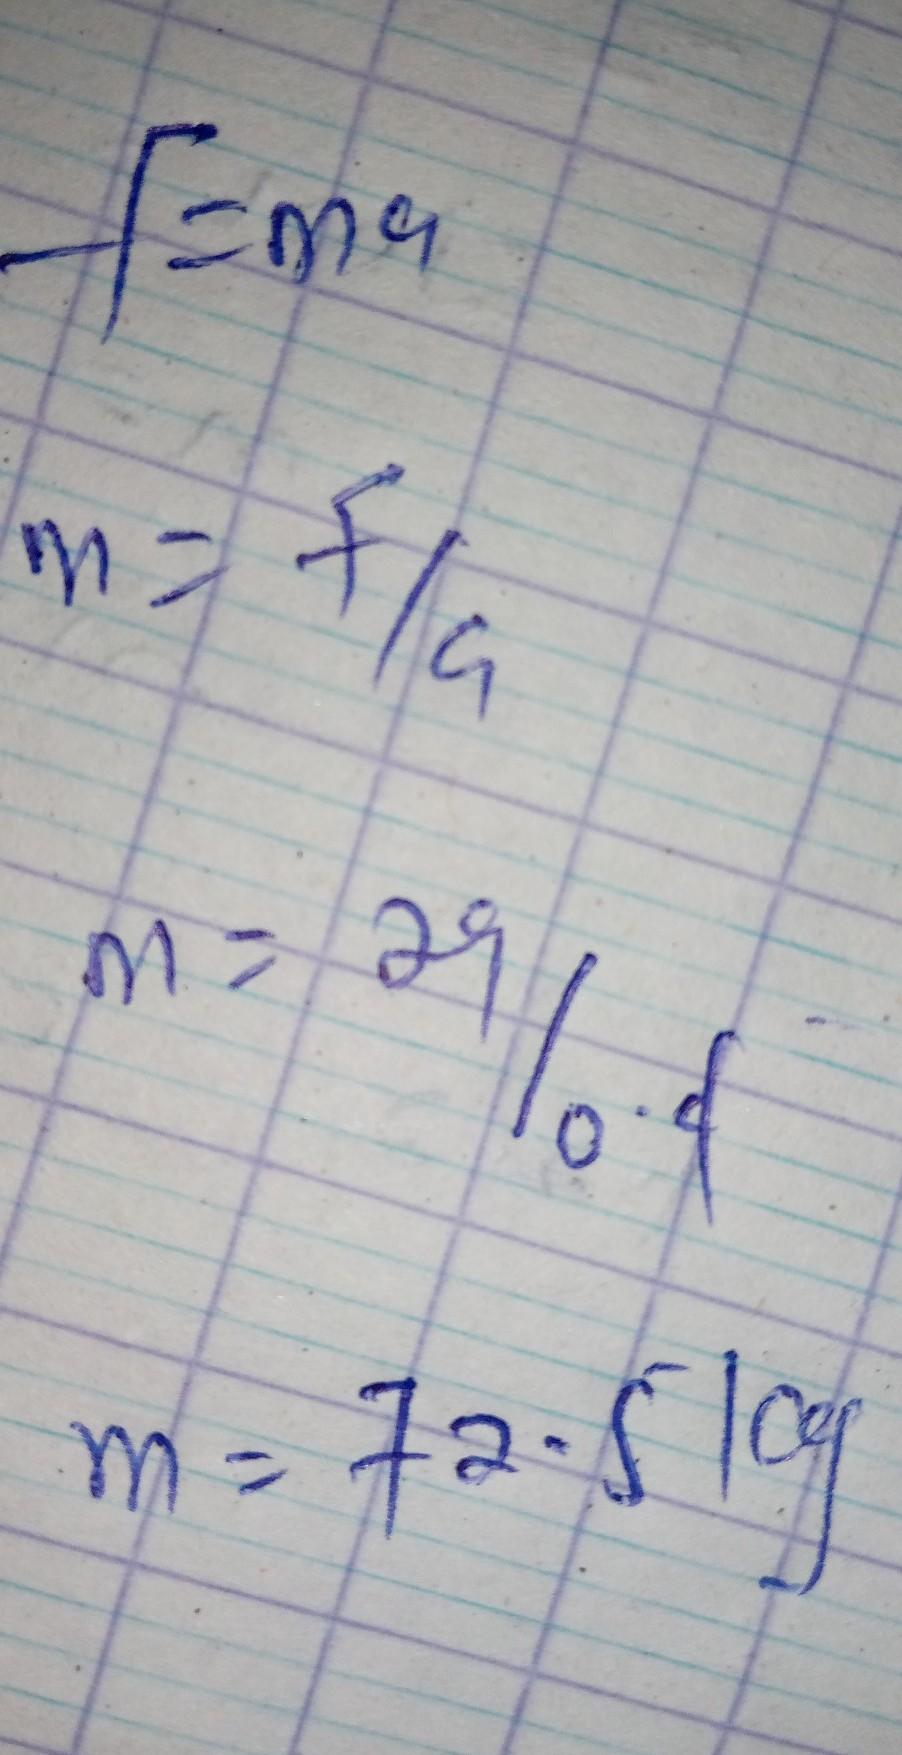 F=ma
m = F/a
m = 29/0.4
m = 72.5 kg